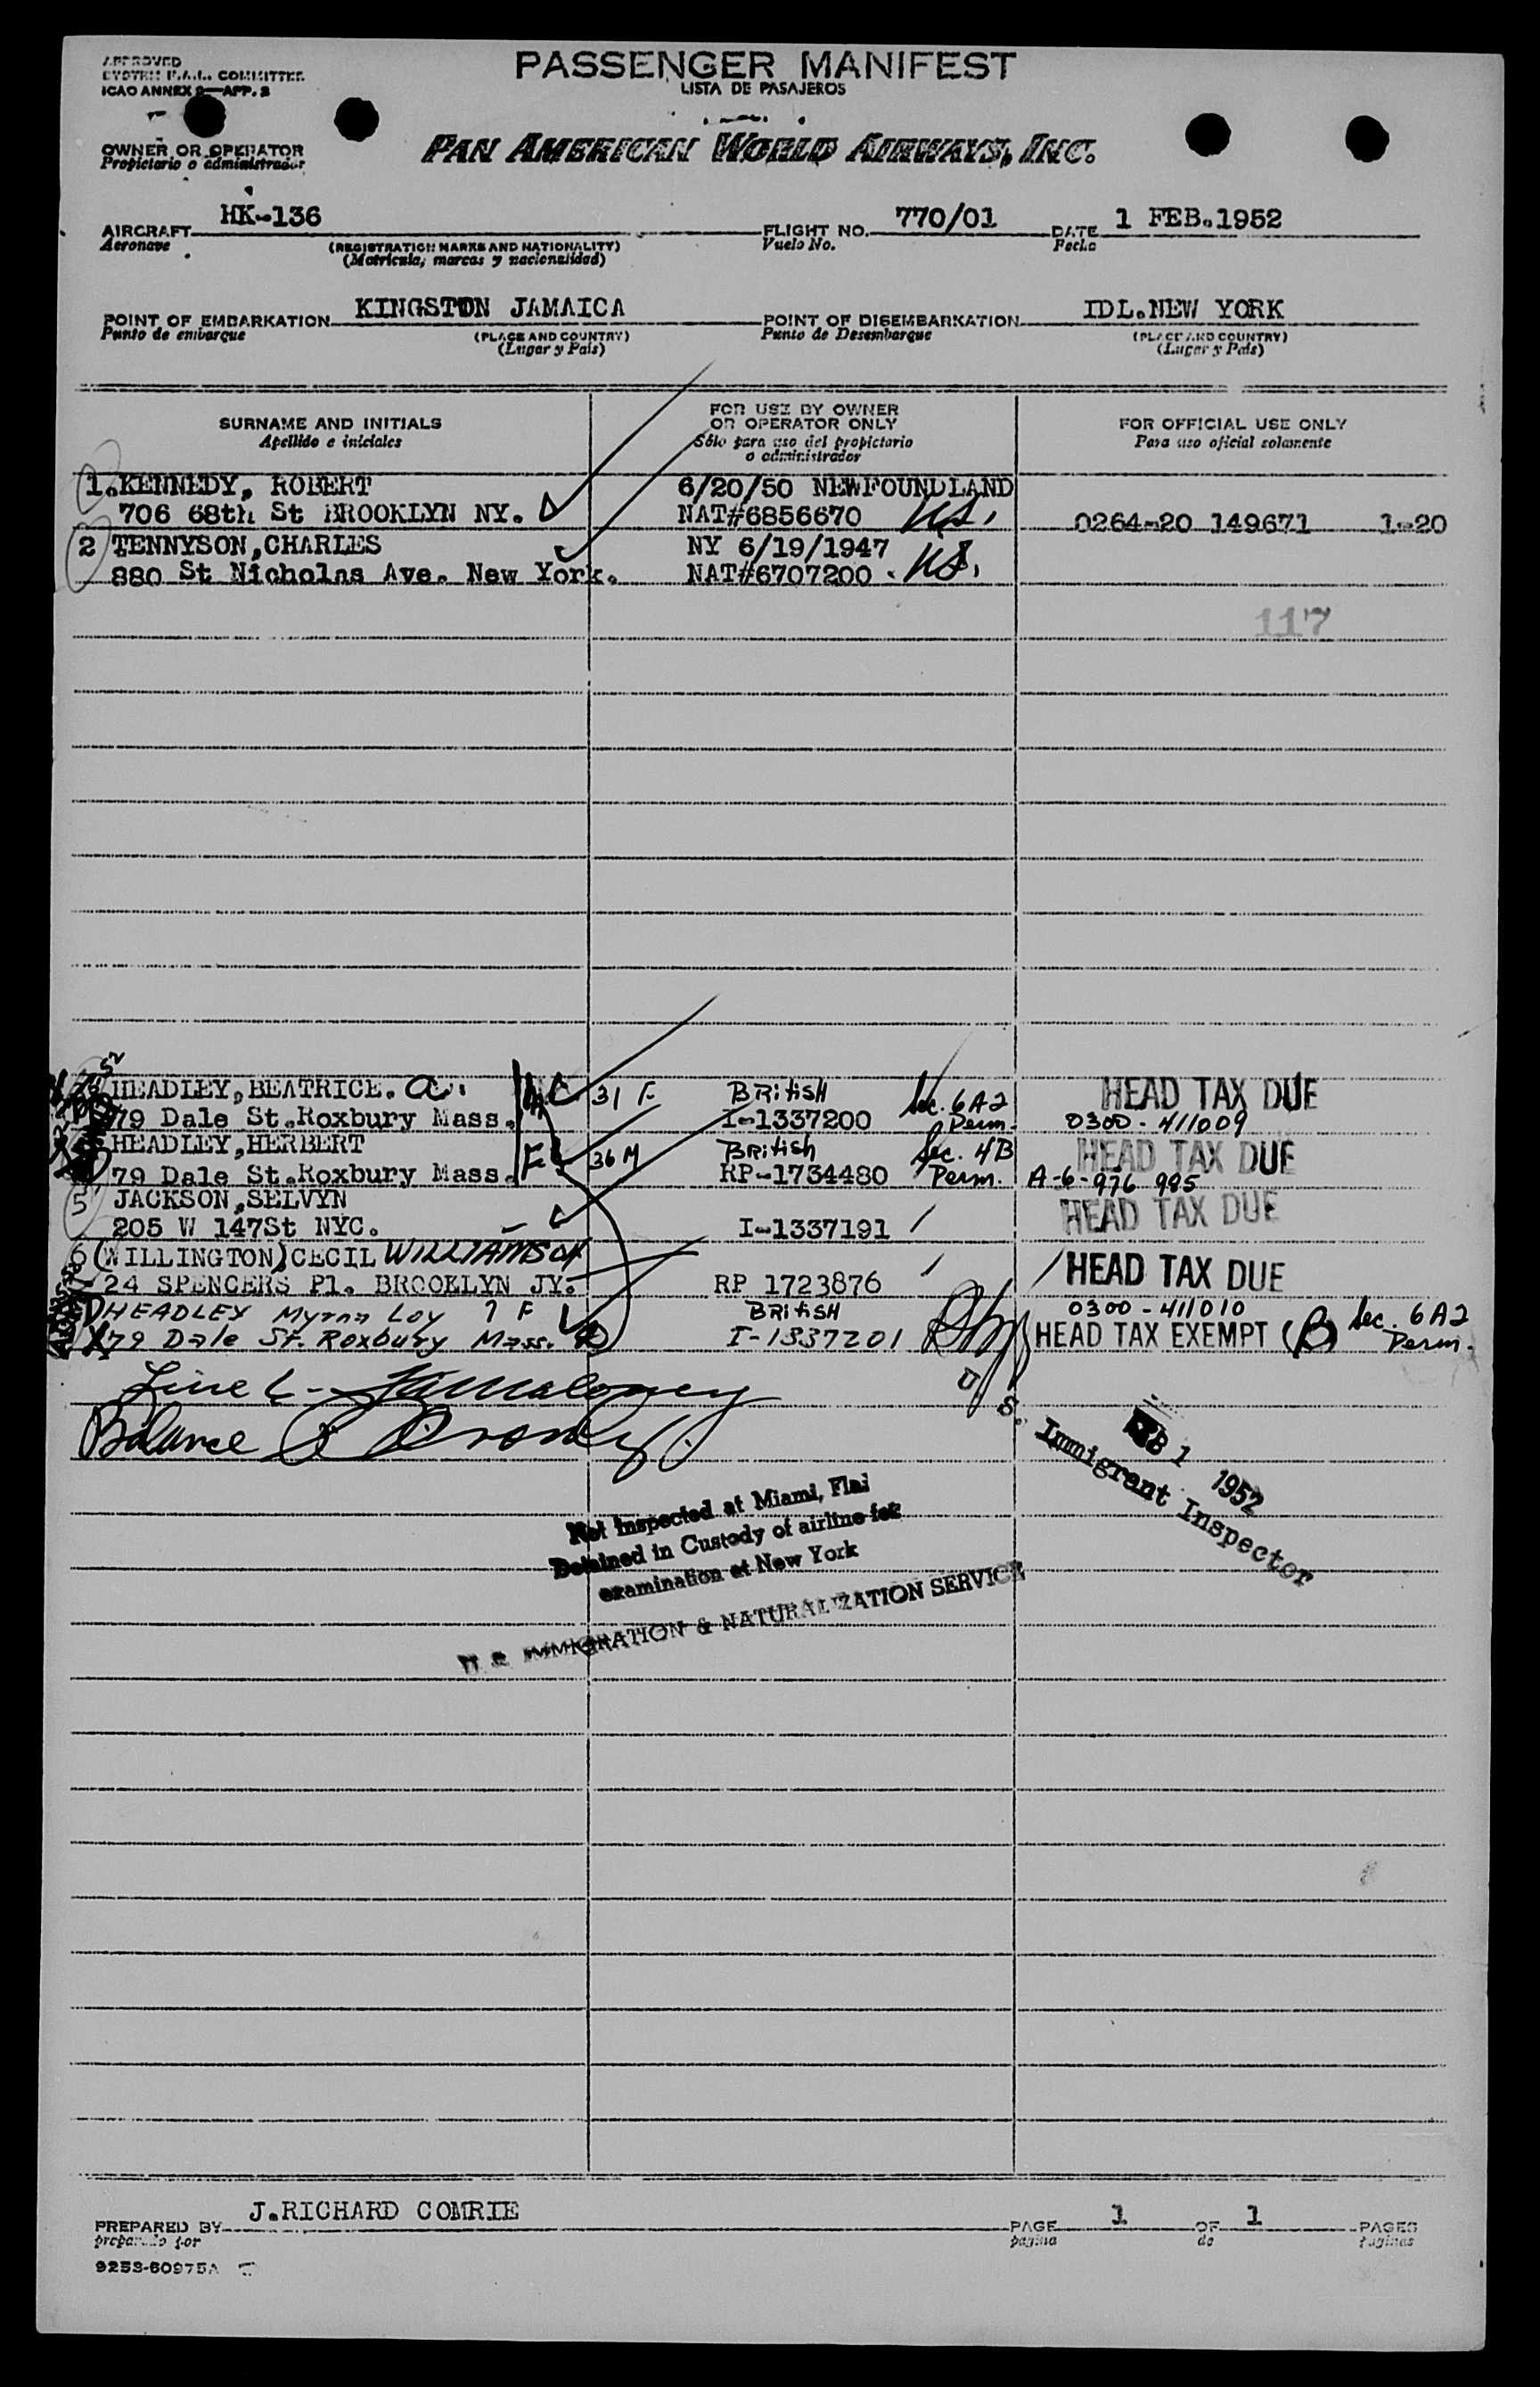 APPROVED
SYSTEM F.A.L. COMMITTEE
ICAO ANNEX 9—APP. 2
PASSENGER MANIFEST
LISTA DE PASAJEROS
OWNER OR OPERATOR
Propietario o administrador
PAN AMERICAN WORLD AIRWAYS, INC.
AIRCRAFT HK-136 FLIGHT NO. 770/01 DATE 1 FEB.1952
Aeronave (REGISTRATION MARKS AND NATIONALITY) Vuelo No. Fecha
(Matricula, marcas y nacionalidad)
POINT OF EMBARKATION KINGSTON JAMAICA POINT OF DISEMBARKATION IDL.NEW YORK
Punto de embarque (PLACE AND COUNTRY) Punto de Desembarque (PLACE AND COUNTRY)
(Lugar y País) (Lugar y País)
SURNAME AND INITIALS FOR USE BY OWNER OR OPERATOR ONLY FOR OFFICIAL USE ONLY
Apellido e iniciales Sólo para uso del propietario o administrador Para uso oficial solamente
1.KENNEDY, ROBERT 6/20/50 NEWFOUNDLAND
706 68th St BROOKLYN NY. NAT#6856670 US. 0264-20 149671 1-20
2 TENNYSON,CHARLES NY 6/19/1947
880 St Nicholas Ave. New York. NAT#6707200 US.
117
HEADLEY,BEATRICE. a. 31 F. BRitisH Sec. 6A2 HEAD TAX DUE
79 Dale St.Roxbury Mass. I-1337200 Perm. 0300-411009
HEADLEY,HERBERT 36 M BRitish Sec. 4B HEAD TAX DUE
79 Dale St.Roxbury Mass. RP-1734480 Perm. A-6-976 985
5 JACKSON,SELVYN HEAD TAX DUE
205 W 147St NYC. I-1337191
6 (WILLINGTON)CECIL WILLIAMSON HEAD TAX DUE
24 SPENCERS Pl. BROOKLYN JY. RP 1723876
HEADLEY Myrna Loy 7 F BRitisH 0300-411010 Sec. 6A2
79 Dale St. Roxbury Mass. I-1337201 HEAD TAX EXEMPT (B) Perm.
Line
Balance
FEB 1 1952
U. S. Immigrant Inspector
Not Inspected at Miami, Fla.
Detained in Custody of airline for
examination at New York
U. S. IMMIGRATION & NATURALIZATION SERVICE
PREPARED BY J.RICHARD COMRIE PAGE 1 OF 1 PAGES
preparado por página de páginas
9253-60975A